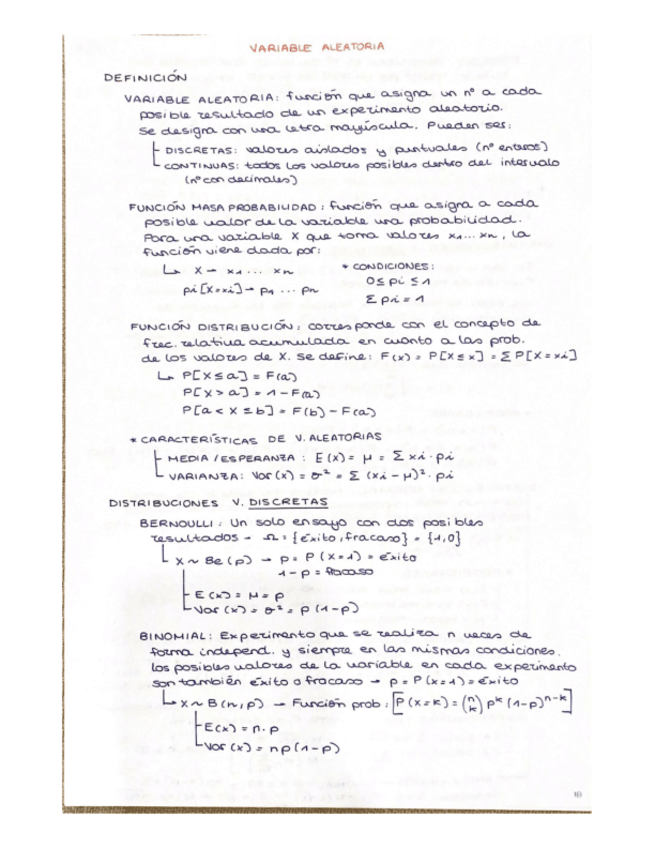 VARIABLE ALEATORIA
DEFINICIÓN
VARIABLE ALEATORIA: función que asigna un nº a cada
posible resultado de un experimento aleatorio.
Se designa con una letra mayúscula. Pueden ser:
DISCRETAS: valores aislados y puntuales (nº enteros)
CONTINUAS: todos los valores posibles dentro del intervalo
(nº con decimales)
FUNCIÓN MASA PROBABILIDAD: función que asigna a cada
posible valor de la variable una probabilidad.
Para una variable X que toma valores x1... xn, la
función viene dada por:
↳ X → x1 ... xn * CONDICIONES:
pi[X=xi] → p1 ... pn 0≤pi≤1
Σpi=1
FUNCIÓN DISTRIBUCIÓN: corresponde con el concepto de
frec. relativa acumulada en cuanto a las prob.
de los valores de X. Se define: F(x) = P[X≤x] = ΣP[X=xi]
↳ P[X≤a] = F(a)
P[X>a] = 1-F(a)
P[a<X≤b] = F(b)-F(a)
* CARACTERÍSTICAS DE V. ALEATORIAS
MEDIA/ESPERANZA: E(X) = μ = Σxi·pi
VARIANZA: Var(x) = σ² = Σ(xi-μ)²·pi
DISTRIBUCIONES V. DISCRETAS
BERNOULLI: Un solo ensayo con dos posibles
resultados → Ω = {éxito, fracaso} = {1,0}
↳ X ~ Be(p) → p = P(X=1) = éxito
1-p = fracaso
E(x) = μ = p
Var(x) = σ² = p(1-p)
BINOMIAL: Experimento que se realiza n veces de
forma independ. y siempre en las mismas condiciones.
Los posibles valores de la variable en cada experimento
son también éxito o fracaso → p = P(X=1) = éxito
↳ X ~ B(n,p) → Función prob: [P(X=k) = (n k) p^k (1-p)^n-k]
E(x) = n·p
Var(x) = np(1-p)